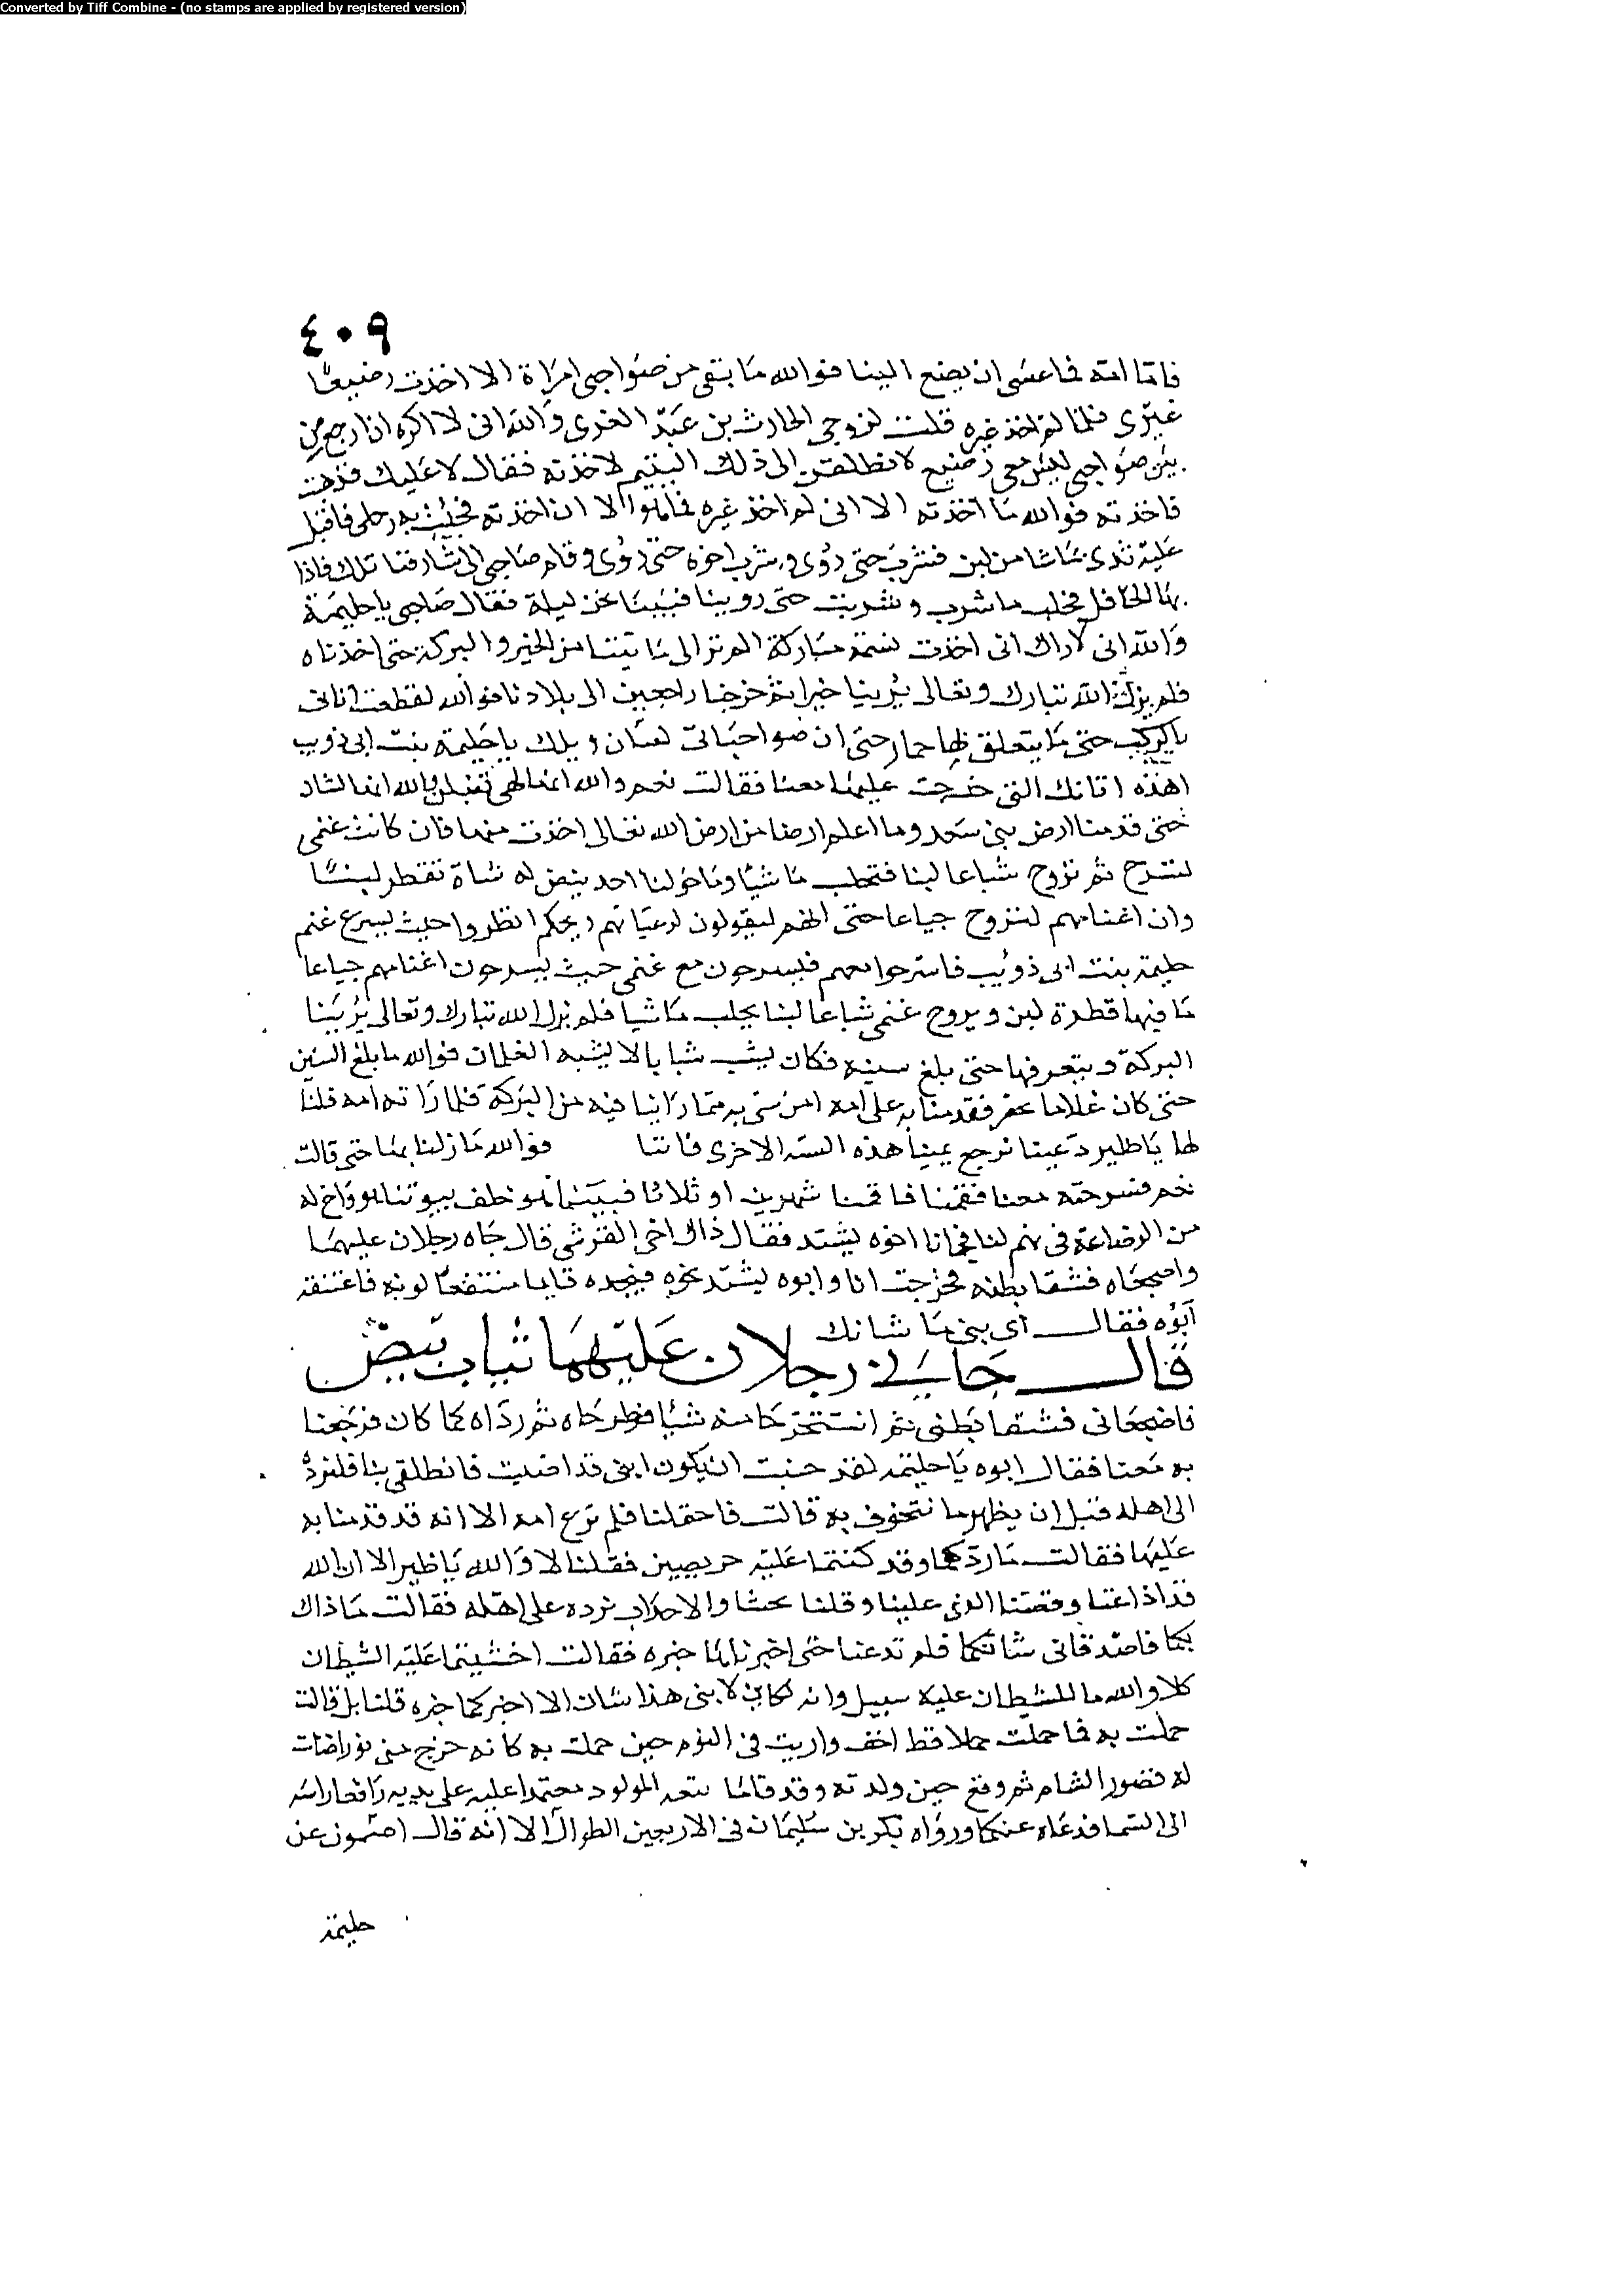 Converted by Tiff Combine - (no stamps are applied by registered version)
٤٠٩
فاما امه فما عسى ان يصنع الينا فوالله ما بقى من صواحبى امراة الا اخذت رضيعا
غيرى فلما لم اخذ غيره قلت لزوجى الحارث بن عبد العزى والله انى لاكره ان ارجع من
بين صواحبى ليس معى رضيع لانطلقن الى ذلك اليتيم لاخذنه فقال لا عليك فذهبت
فاخذته فوالله ما اخذته الا انى لم اخذ غيره فما هو الا ان اخذته فجئت به رحلى فاقبل
عليه ثدى بما شا من لبن فشرب حتى روى وشرب اخوه حتى روى وقام صاحبى الى شارفنا تلك فاذا
بها لحافل فحلب ما شرب وشربت حتى روينا فبتنا بخير ليلة فقال صاحبى يا حليمة
والله انى لاراك انى اخذت نسمة مباركة الم تر الى ما بتنا من الخير والبركة حتى اخذناه
فلم يزل الله تبارك وتعالى يرينا خيرا ثم خرجنا راجعين الى بلادنا فوالله لقطعت اتانى
بالركب حتى ما يتعلق بها حمار حتى ان صواحباتى ويلك يا حليمة بنت ابى ذويب
اهذه اتانك التى خرجت عليها معنا فقالت نعم والله انها لهى والله ان لها لشانا
حتى قدمنا ارض بنى سعد وما اعلم ارضا من ارض الله تعالى اجدب منها فان كانت غنمى
لتسرح ثم تروح شباعا لبنا فتحلب ما شيا وما حولنا احد يبض له شاة تقطر لبنا
وان اغنامهم لتروح جياعا حتى انهم ليقولون لرعيانهم ويحكم انظروا حيث يسرح غنم
حليمة بنت ابى ذويب فاسرحوا معهم فيسرحون مع غنمى حيث يسرحون اغنامهم جياعا
ما فيها قطرة لبن ويروح غنمى شباعا لبنا يحلب ما شيا فلم يزل الله تبارك وتعالى يرينا
البركة ويتعرفها حتى بلغ سنيه فكان يشب شبابا لا يشبه الغلمان فوالله ما بلغ السنين
حتى كان غلاما جفر فقدمنا به على امه اضن شى به مما راينا فيه من البركة فلما راته امه قلنا
لها يا ظير دعينا نرجع ببنينا هذه السنه الاخرى فاننا فوالله ما زلنا بها حتى قالت
نعم فسرحته معنا فقمنا فاقمنا شهرين او ثلاثا فبينما هو خلف بيوتنا هو واخ له
من الرضاعة فى بهم لنا فجانا اخوه يشتد فقال ذاك اخى القرشى قال جاه رجلان عليهما
واضجعاه فشقا بطنه فخرجت انا وابوه يشتد نحوه فنجده قايما منتقعا لونه فاعتنقه
ابوه فقال اى بنى ما شانك
قال جانى رجلان عليهما ثياب بيض
فاضجعانى فشقا بطنى ثم استخرجا منه شيا فطرحاه ثم رداه كما كان فرجعنا
به معنا فقال ابوه يا حليمة لقد خشيت ان يكون ابنى قد اصيب فانطلقى بنا فلنرده
الى اهله قبل ان يظهر ما نتخوف به قالت فاحتملنا فلم ترع امه الا انه قد قدمنا به
عليها فقالت ما ردكما وقد كنتما عليه حريصين فقلنا لا والله يا ظير الا ان الله
قد اذا عنا وقضينا الذى علينا وقلنا نخشا والاحداث نرده على اهله فقالت ما ذاك
بكما فاصدقانى شانكما فلم تدعنا حتى اخبرناها خبره فقالت اخشيتما عليه الشيطان
كلا والله ما للشيطان عليه سبيل وانه لكاين لابنى هذا شان الا اخبركما خبره قلنا بلى قالت
حملت به فما حملت حملا قط اخف واريت فى النوم حين حملت به كانه خرج منى نور اضات
له قصور الشام ثم وقع حين ولدته وقد قاما يقعه المولود معتمدا عليه على يديه رافعا راسه
الى السما فدعاه عنكما ورواه بكر بن سليمان فى الاربعين الطوال الا انه قال عن
حليمة